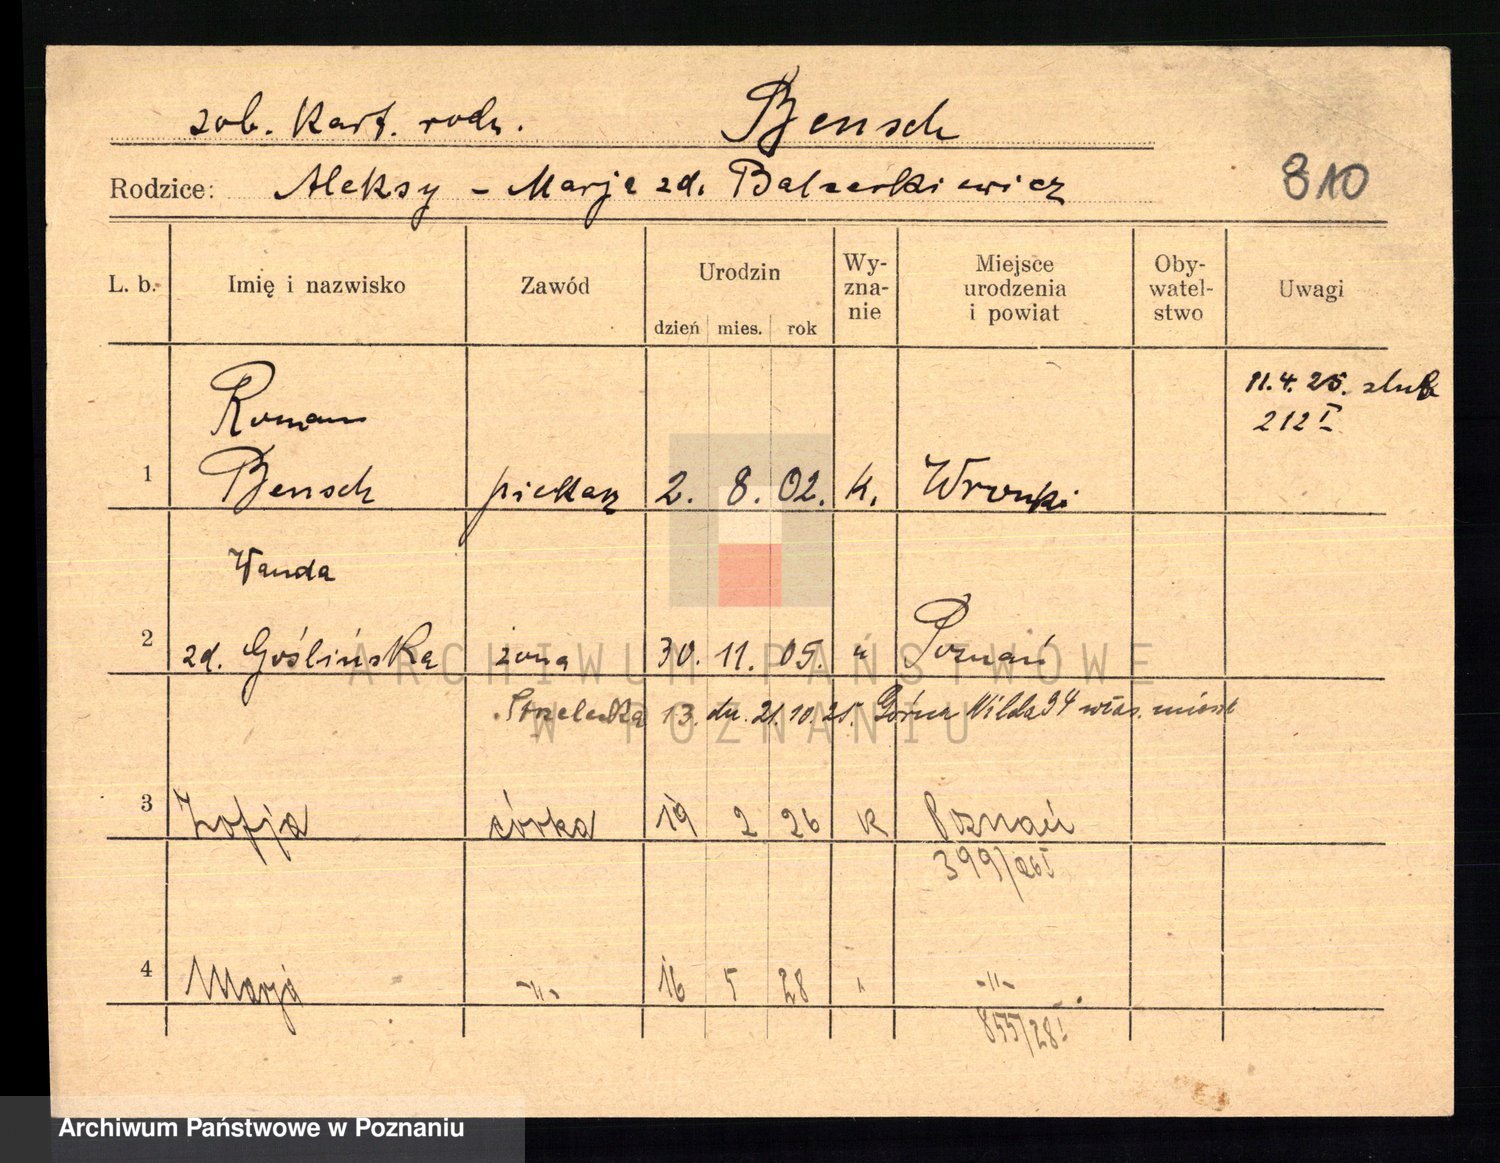 zob. Kart. rodz. Bensch
Rodzice: Aleksy - Marja zd. Balcerkiewicz
310
L. b. Imię i nazwisko Zawód Urodzin dzień mies. rok Wy-zna-nie Miejsce urodzenia i powiat Oby-watel-stwo Uwagi
11.4.25. ślub
212 I
Roman
1 Bensch piekarz 2. 8. 02. k. Wronki
Wanda
2 zd. Goślińska żona 30. 11. 05. " Poznań
Strzelecka 13. dn. 21.10.25. Górna Wilda 94 włas. mieszk
3 Zofja córka 19 2 26 k Poznań
399/26 I
4 Marja -"- 16 5 28 " -"-
855/28 I
ARCHIWUM PAŃSTWOWE
W POZNANIU
Archiwum Państwowe w Poznaniu